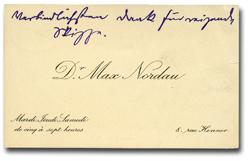 Verbindlichsten Dank für reizende
Skizze.
Dr Max Nordau
Mardi-Jeudi-Samedi
de cinq à sept heures
8, rue Henner